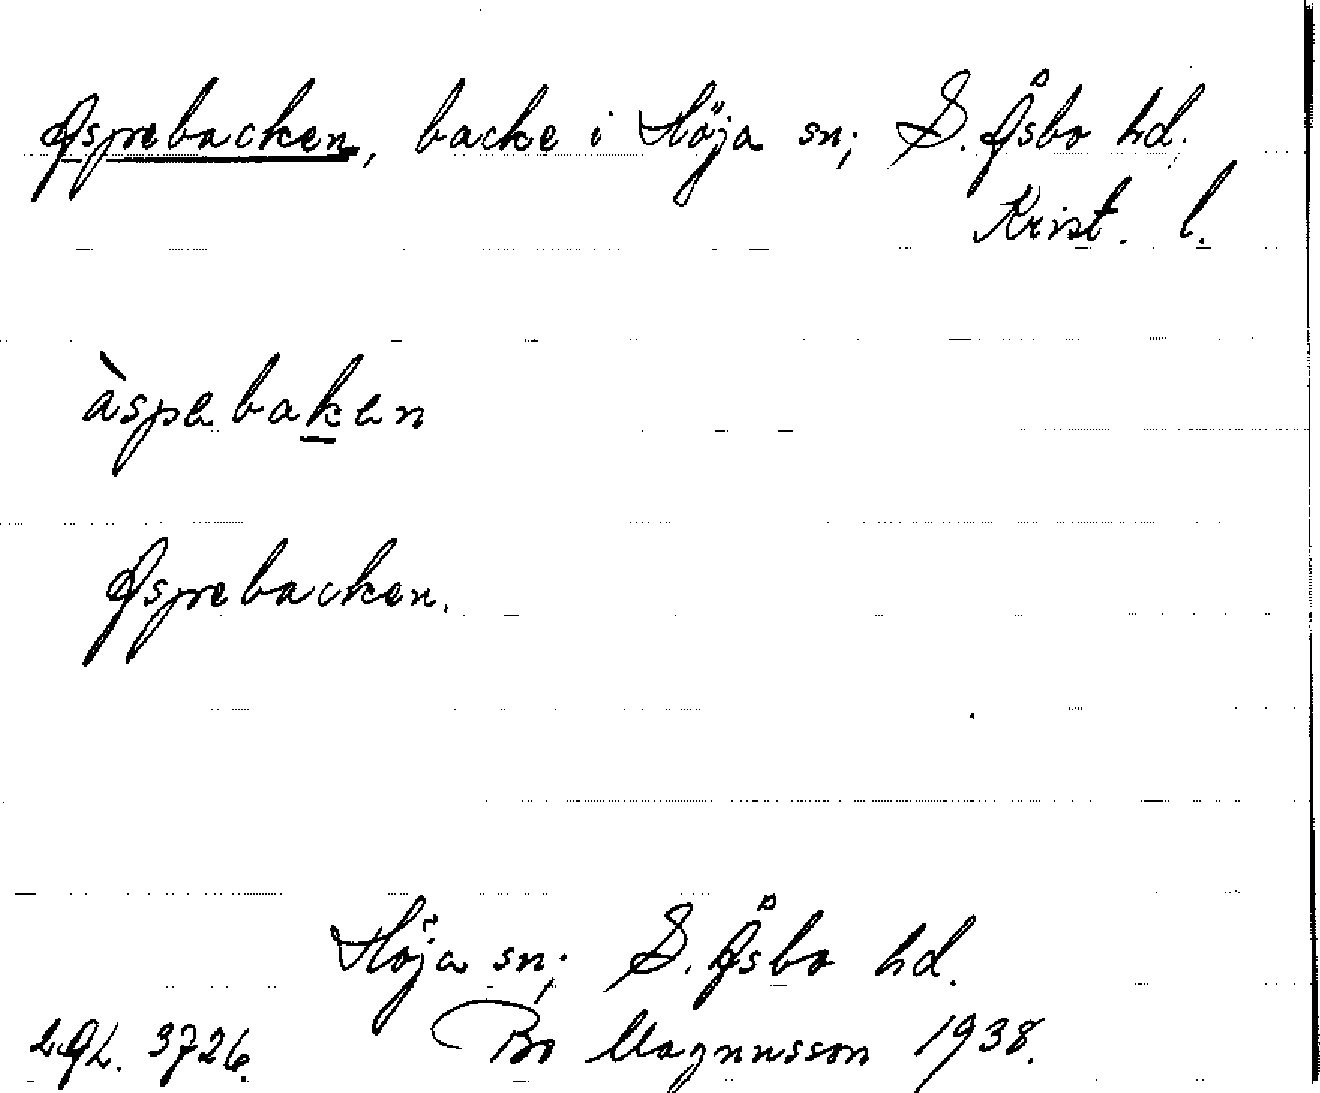 Aspebacken, backe i Höja sn; S. Åsbo hd.
Krist. l.
àspebaken
Aspebacken.
Höja sn; S. Åsbo hd.
LAL. 3726. Bo Magnusson 1938.